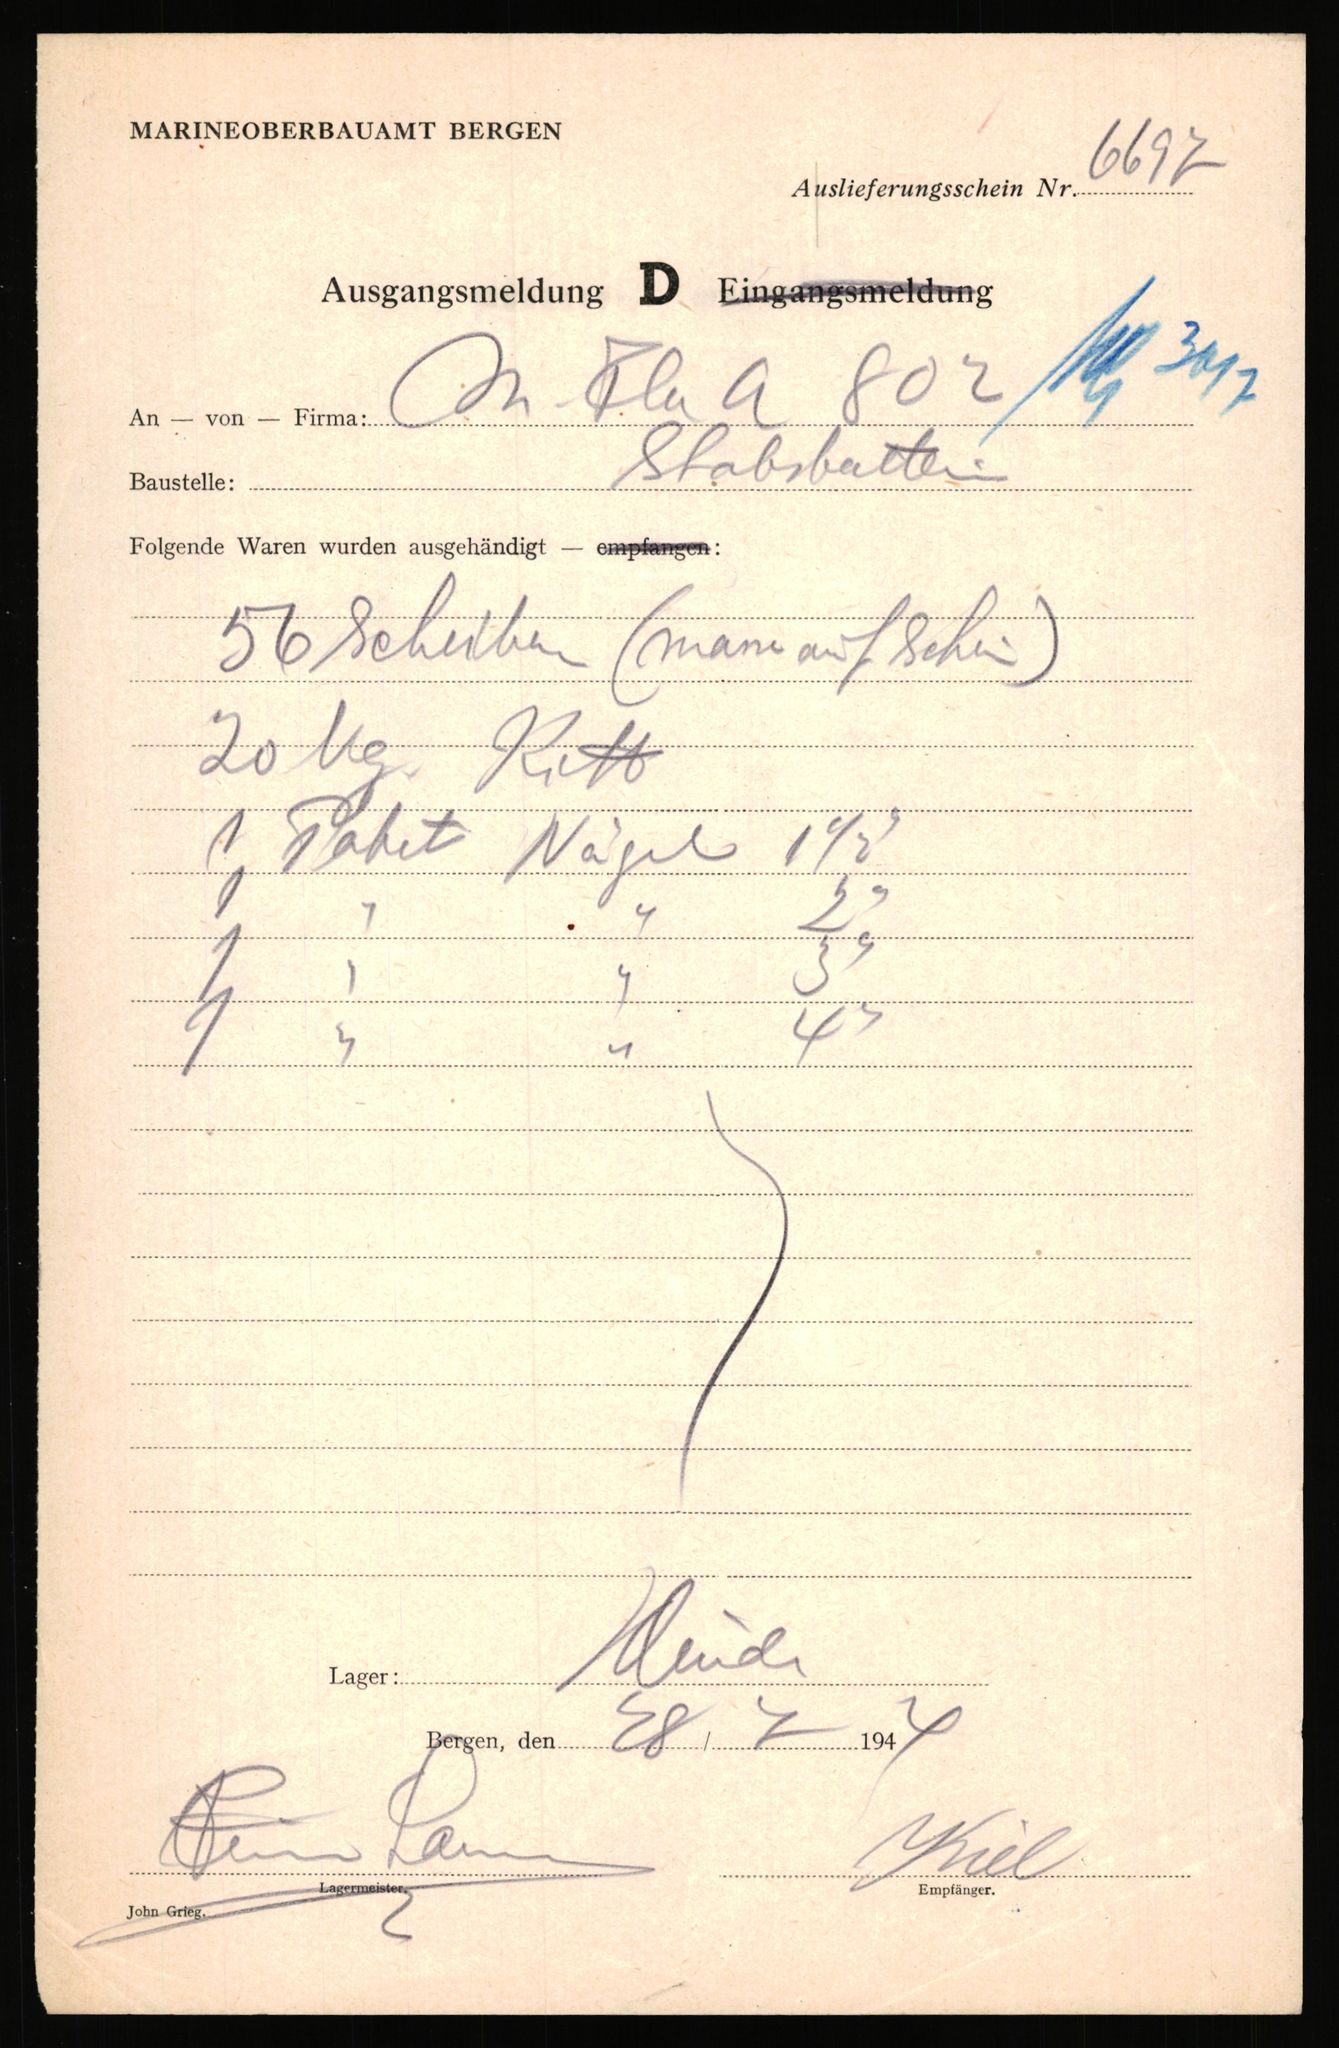 MARINEOBERBAUAMT BERGEN
Auslieferungsschein Nr. 6697
Ausgangsmeldung D Eingangsmeldung
An — von — Firma: M. Fla A 802
30/7
Baustelle: Stabsbatterie
Folgende Waren wurden ausgehändigt — empfangen:
56 Scheiben ( auf Schein)
20 Kg. Kitt
1 Paket Nägel 1 1/2"
1 " " 2"
1 " " 3"
1 " " 4"
Lager:
Bergen, den 28 / 7 1944
Kiel
Lagermeister.
Empfänger.
John Grieg.